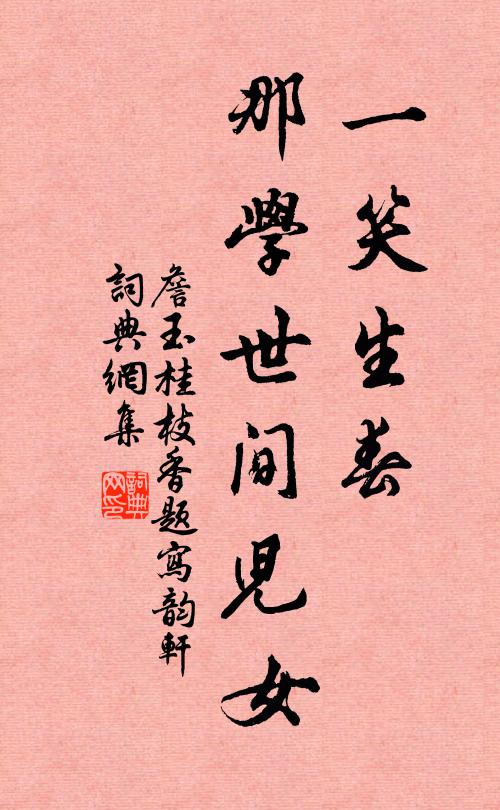 一笑生春
那學世間兒女
詹玉桂枝香題寫韵軒
詞典網集
詞典网印